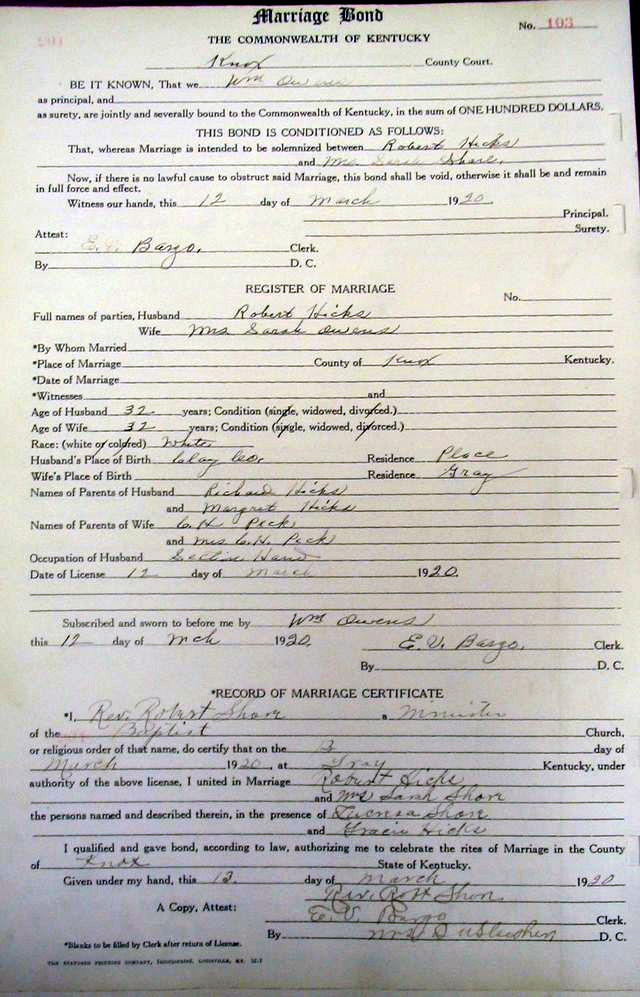 Marriage Bond
No. 103
THE COMMONWEALTH OF KENTUCKY
Knox County Court.
BE IT KNOWN, That we Wm Owens
as principal, and
as surety, are jointly and severally bound to the Commonwealth of Kentucky, in the sum of ONE HUNDRED DOLLARS.
THIS BOND IS CONDITIONED AS FOLLOWS:
That, whereas Marriage is intended to be solemnized between Robert Hicks
and Mrs Sarah
Now, if there is no lawful cause to obstruct said Marriage, this bond shall be void, otherwise it shall be and remain
in full force and effect.
Witness our hands, this 12 day of March 1920.
Principal.
Surety.
Attest:
E. V. Bargo. Clerk.
By D. C.
REGISTER OF MARRIAGE
No.
Full names of parties, Husband Robert Hicks
Wife Mrs Sarah Owens
*By Whom Married
*Place of Marriage County of Knox Kentucky.
*Date of Marriage
*Witnesses and
Age of Husband 32 years; Condition (single, widowed, divorced.)
Age of Wife 32 years; Condition (single, widowed, divorced.)
Race: (white or colored) White
Husband's Place of Birth Clay Co. Residence Place
Wife's Place of Birth Residence Gray
Names of Parents of Husband Richard Hicks
and Margret Hicks
Names of Parents of Wife C. H. Peck
and Mrs C. H. Peck
Occupation of Husband Section Hand
Date of License 12 day of March 1920.
Subscribed and sworn to before me by Wm Owens
this 12 day of Mch 1920. E. V. Bargo. Clerk.
By D. C.
*RECORD OF MARRIAGE CERTIFICATE
*I, Rev. Robert Shore a Minister
of the Baptist Church,
or religious order of that name, do certify that on the day of
March 1920, at Gray Kentucky, under
authority of the above license, I united in Marriage Robert Hicks
and Mrs Sarah
the persons named and described therein, in the presence of
and Gracie Hicks
I qualified and gave bond, according to law, authorizing me to celebrate the rites of Marriage in the County
of Knox State of Kentucky.
Given under my hand, this 13 day of March 1920
Rev. Robt
A Copy, Attest: E. V. Bargo Clerk.
By Mrs D. C.
*Blanks to be filled by Clerk after return of License.
THE STANDARD PRINTING COMPANY, Incorporated, LOUISVILLE, KY.